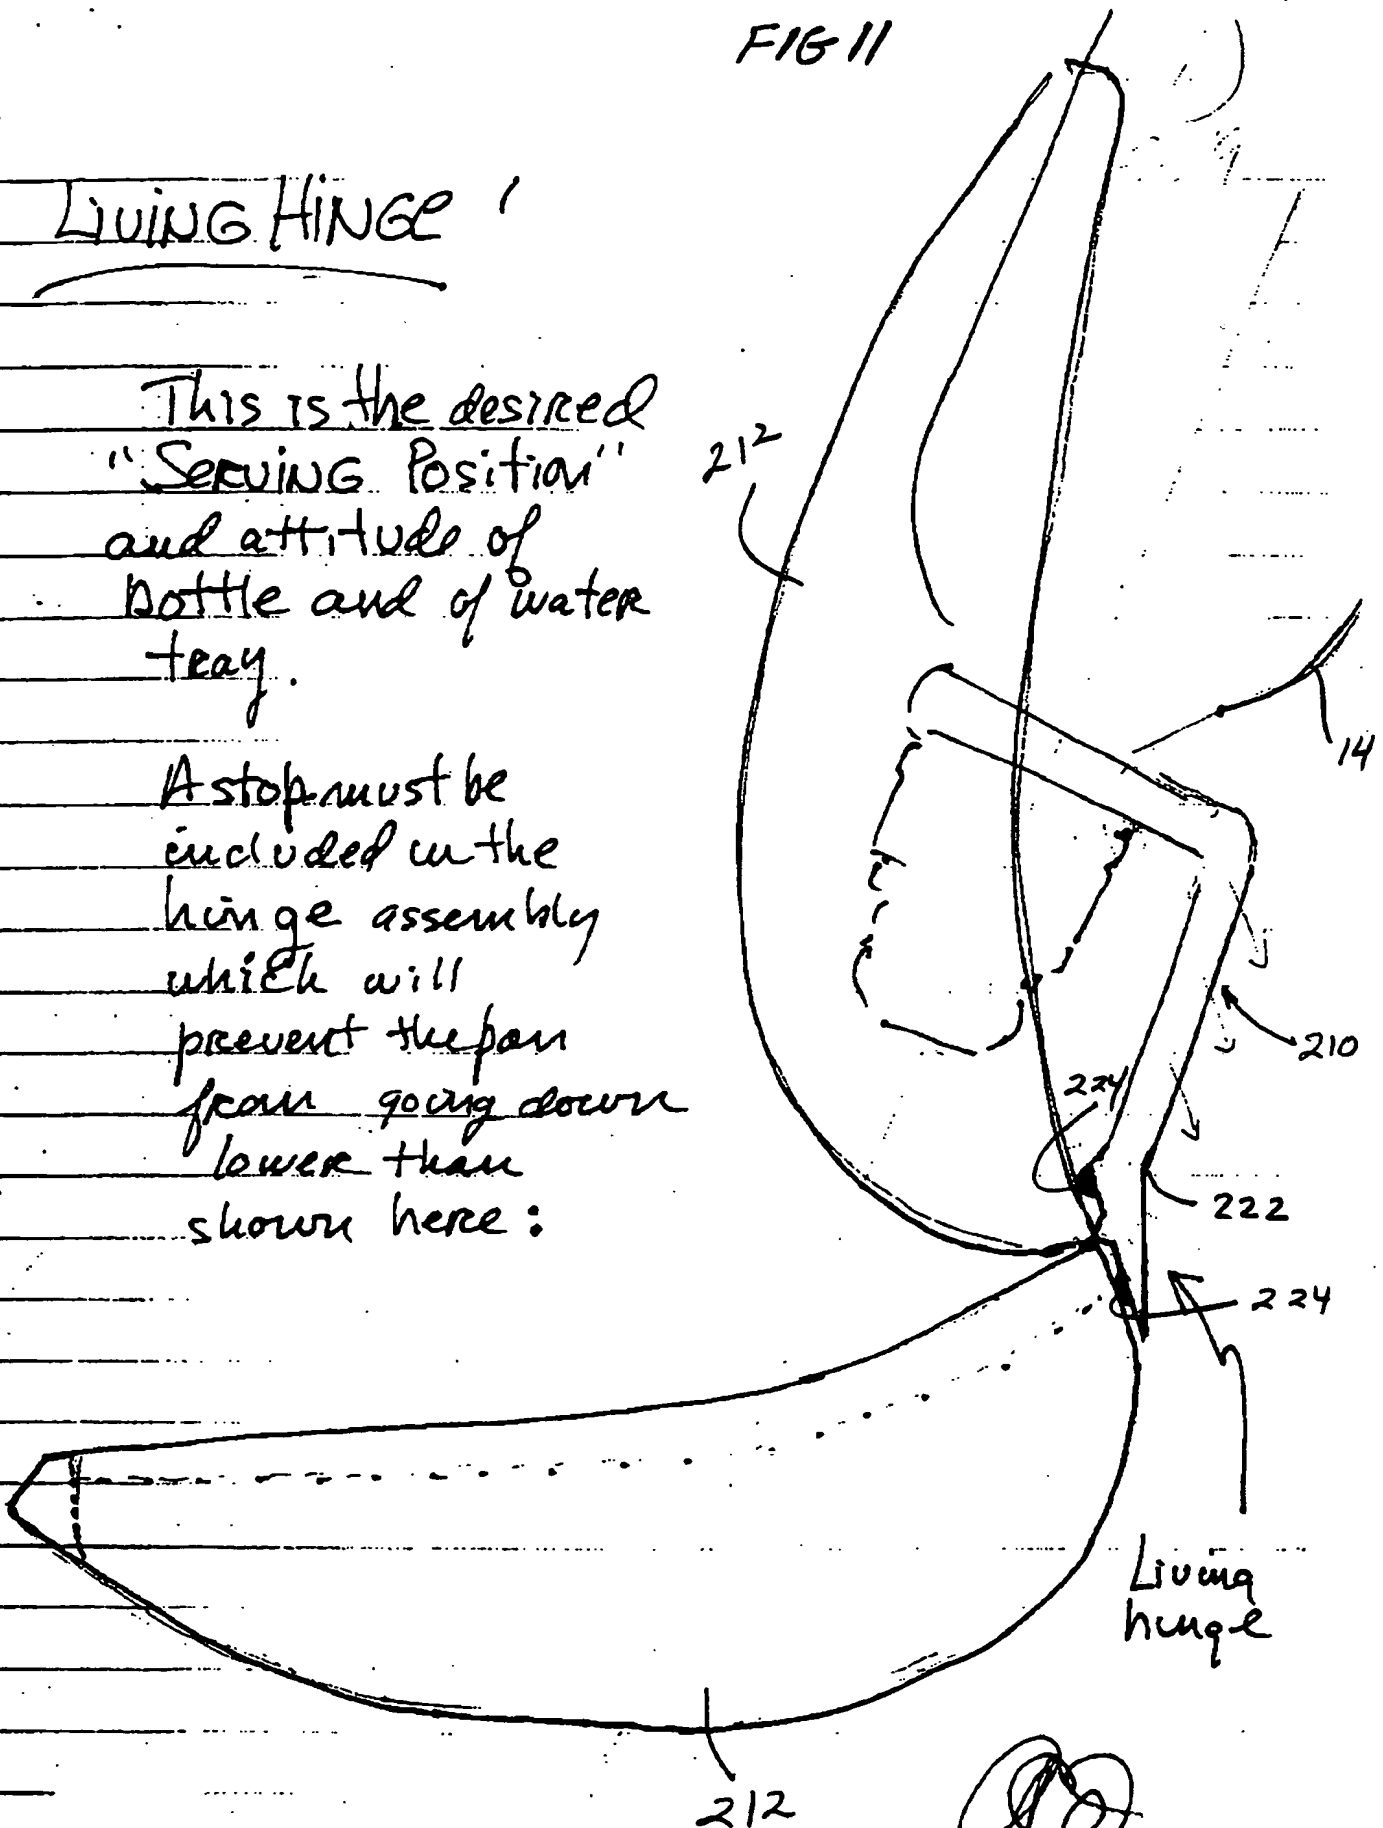 FIG 11
LIVING HINGE
This is the desired
"SERVING Position"
and attitude of
bottle and of water
tray.
A stop must be
included in the
hinge assembly
which will
prevent the pan
from going down
lower than
shown here:
212
14
210
224
222
224
Living
hinge
212